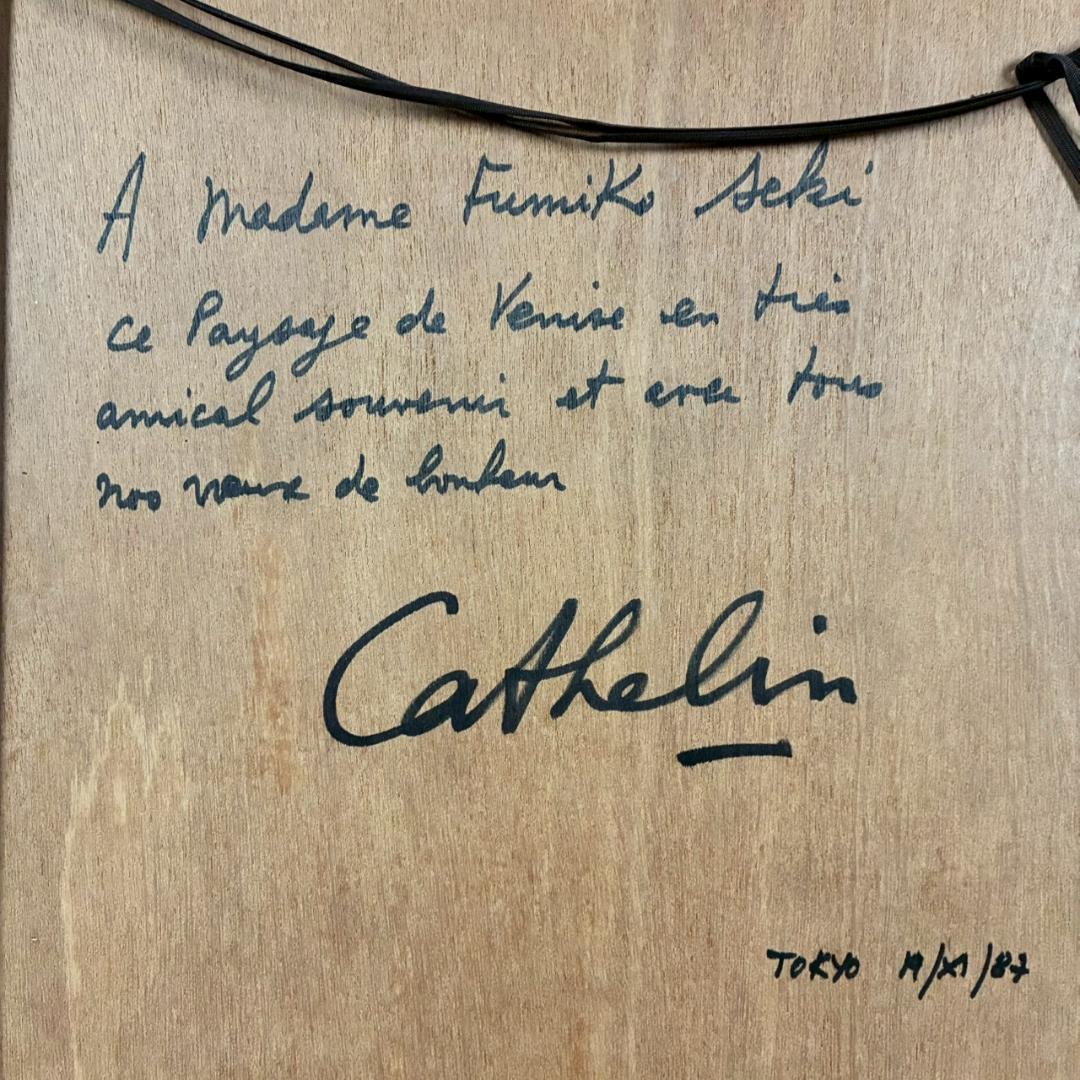 A Madame Fumiko Seki
ce Paysage de Venise en très
amical souvenir et avec tous
nos vœux de bonheur
Cathelin
TOKYO 19/XI/87